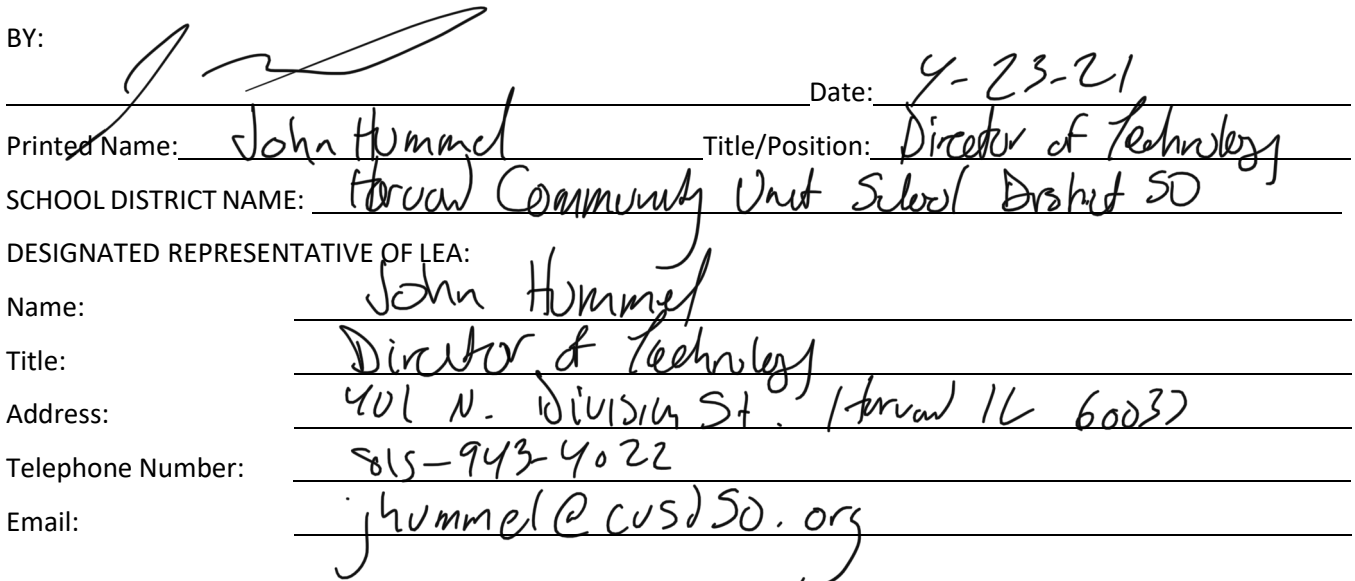 BY:
Date: 4-23-21
Printed Name: John Hummel Title/Position: Director of Technology
SCHOOL DISTRICT NAME: Harvard Community Unit School District 50
DESIGNATED REPRESENTATIVE OF LEA:
Name: John Hummel
Title: Director of Technology
Address: 401 N. Division St. Harvard IL 60033
Telephone Number: 815-943-4022
Email: jhummel@cusd50.org